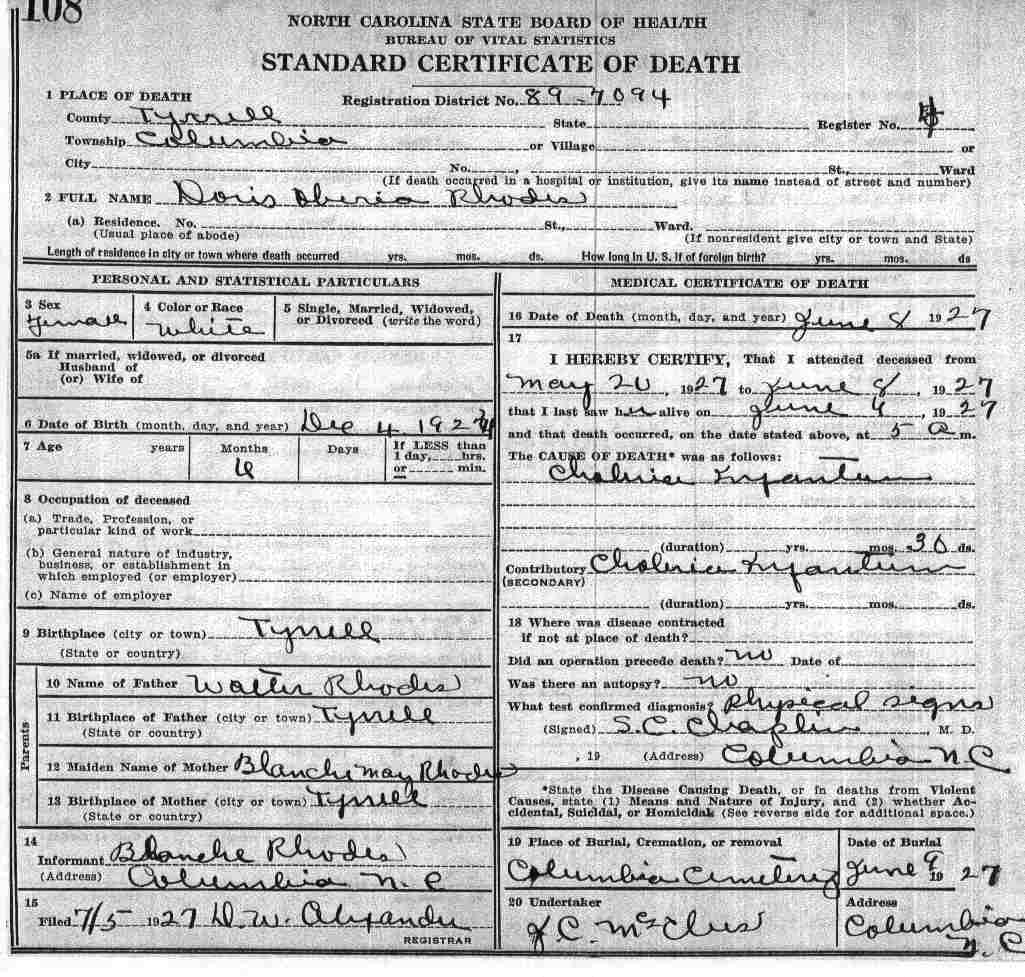 108
NORTH CAROLINA STATE BOARD OF HEALTH
BUREAU OF VITAL STATISTICS
STANDARD CERTIFICATE OF DEATH
1 PLACE OF DEATH Registration District No. 89-7094
County Tyrrell State Register No. 4
Township Columbia or Village or
City No. , St., Ward
(If death occurred in a hospital or institution, give its name instead of street and number)
2 FULL NAME Doris Oberia Rhodes
(a) Residence. No. St., Ward.
(Usual place of abode) (If nonresident give city or town and State)
Length of residence in city or town where death occurred yrs. mos. ds. How long in U. S. if of foreign birth? yrs. mos. ds
PERSONAL AND STATISTICAL PARTICULARS
3 Sex
Female
4 Color or Race
White
5 Single, Married, Widowed,
or Divorced (write the word)
5a If married, widowed, or divorced
Husband of
(or) Wife of
6 Date of Birth (month, day, and year) Dec 4 192
7 Age years Months Days
6
If LESS than
1 day, hrs.
or min.
8 Occupation of deceased
(a) Trade, Profession, or
particular kind of work
(b) General nature of industry,
business, or establishment in
which employed (or employer)
(c) Name of employer
9 Birthplace (city or town) Tyrrell
(State or country)
Parents
10 Name of Father Walter Rhodes
11 Birthplace of Father (city or town) Tyrrell
(State or country)
12 Maiden Name of Mother Blanche May Rhodes
13 Birthplace of Mother (city or town) Tyrrell
(State or country)
14
Informant Blanche Rhodes
(Address) Columbia N. C
15
Filed 7/5 1927 D. W. Alexander
REGISTRAR
MEDICAL CERTIFICATE OF DEATH
16 Date of Death (month, day, and year) June 8 1927
17
I HEREBY CERTIFY, That I attended deceased from
May 20, 1927 to June 8, 1927
that I last saw her alive on June , 1927
and that death occurred, on the date stated above, at 5 a m.
The CAUSE OF DEATH* was as follows:
Infantum
(duration) yrs. mos. 30 ds.
Contributory Infantum
(SECONDARY)
(duration) yrs. mos. ds.
18 Where was disease contracted
if not at place of death?
Did an operation precede death? no Date of
Was there an autopsy? no
What test confirmed diagnosis? Physical signs
(Signed) S. C. Chaplin, M. D.
, 19 (Address) Columbia N. C
*State the Disease Causing Death, or in deaths from Violent
Causes, state (1) Means and Nature of Injury, and (2) whether Ac-
cidental, Suicidal, or Homicidal. (See reverse side for additional space.)
19 Place of Burial, Cremation, or removal
Columbia Cemetery
Date of Burial
June 9 19 27
20 Undertaker
J. C.
Address
Columbia
N. C